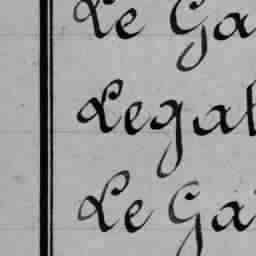 Le Ga
Legal
Le Ga